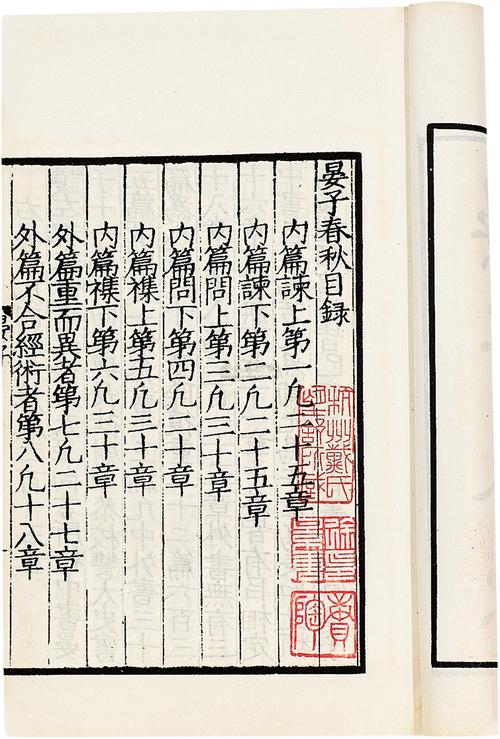 晏子春秋目録
内篇諫上第一凡二十五章
内篇諫下第二凡二十五章
内篇問上第三凡三十章
内篇問下第四凡三十章
内篇襍上第五凡三十章
内篇襍下第六凡三十章
外篇重而異者第七凡二十七章
外篇不合經術者第八凡十八章
杭州戴氏